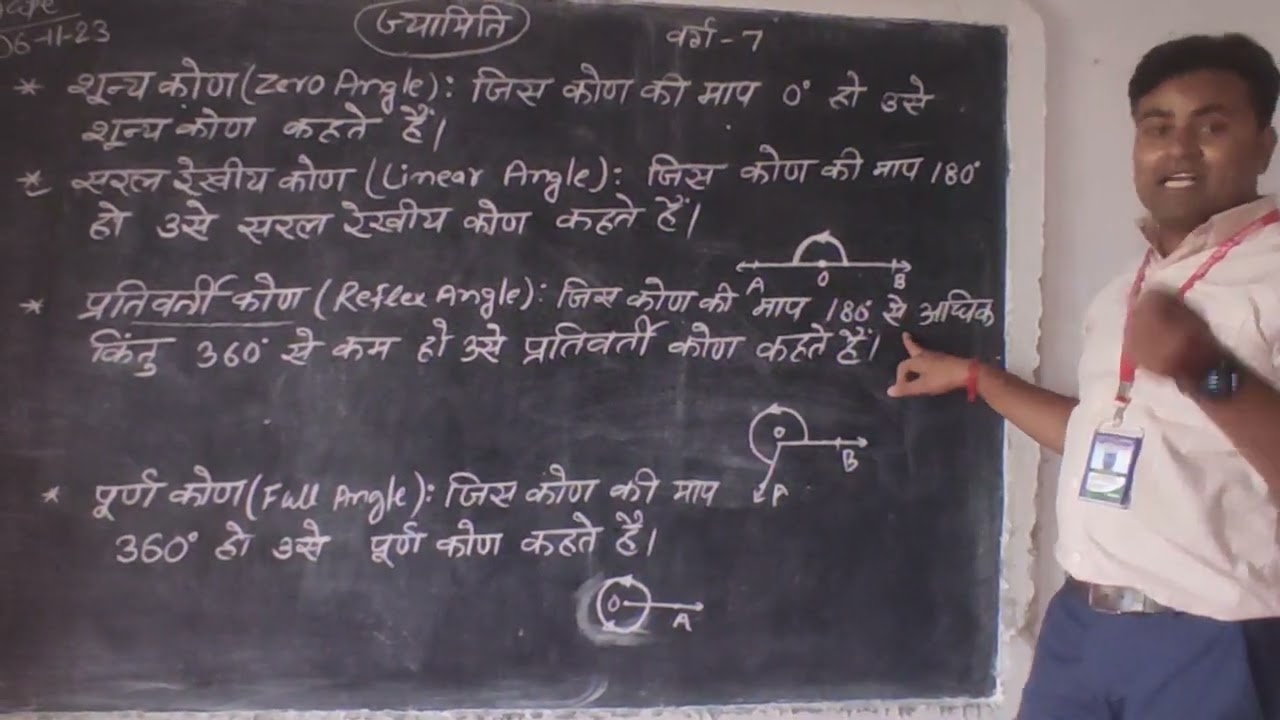 Date
06-11-23
ज्यामिति
वर्ग - 7
* शून्य कोण (Zero Angle) : जिस कोण की माप 0° हो उसे
शून्य कोण कहते हैं।
* सरल रेखीय कोण (Linear Angle) : जिस कोण की माप 180°
हो उसे सरल रेखीय कोण कहते हैं।
A O B
* प्रतिवर्ती कोण (Reflex Angle) : जिस कोण की माप 180° से अधिक
किंतु 360° से कम हो उसे प्रतिवर्ती कोण कहते हैं।
O B
A
* पूर्ण कोण (Full Angle) : जिस कोण की माप
360° हो उसे पूर्ण कोण कहते हैं।
O A